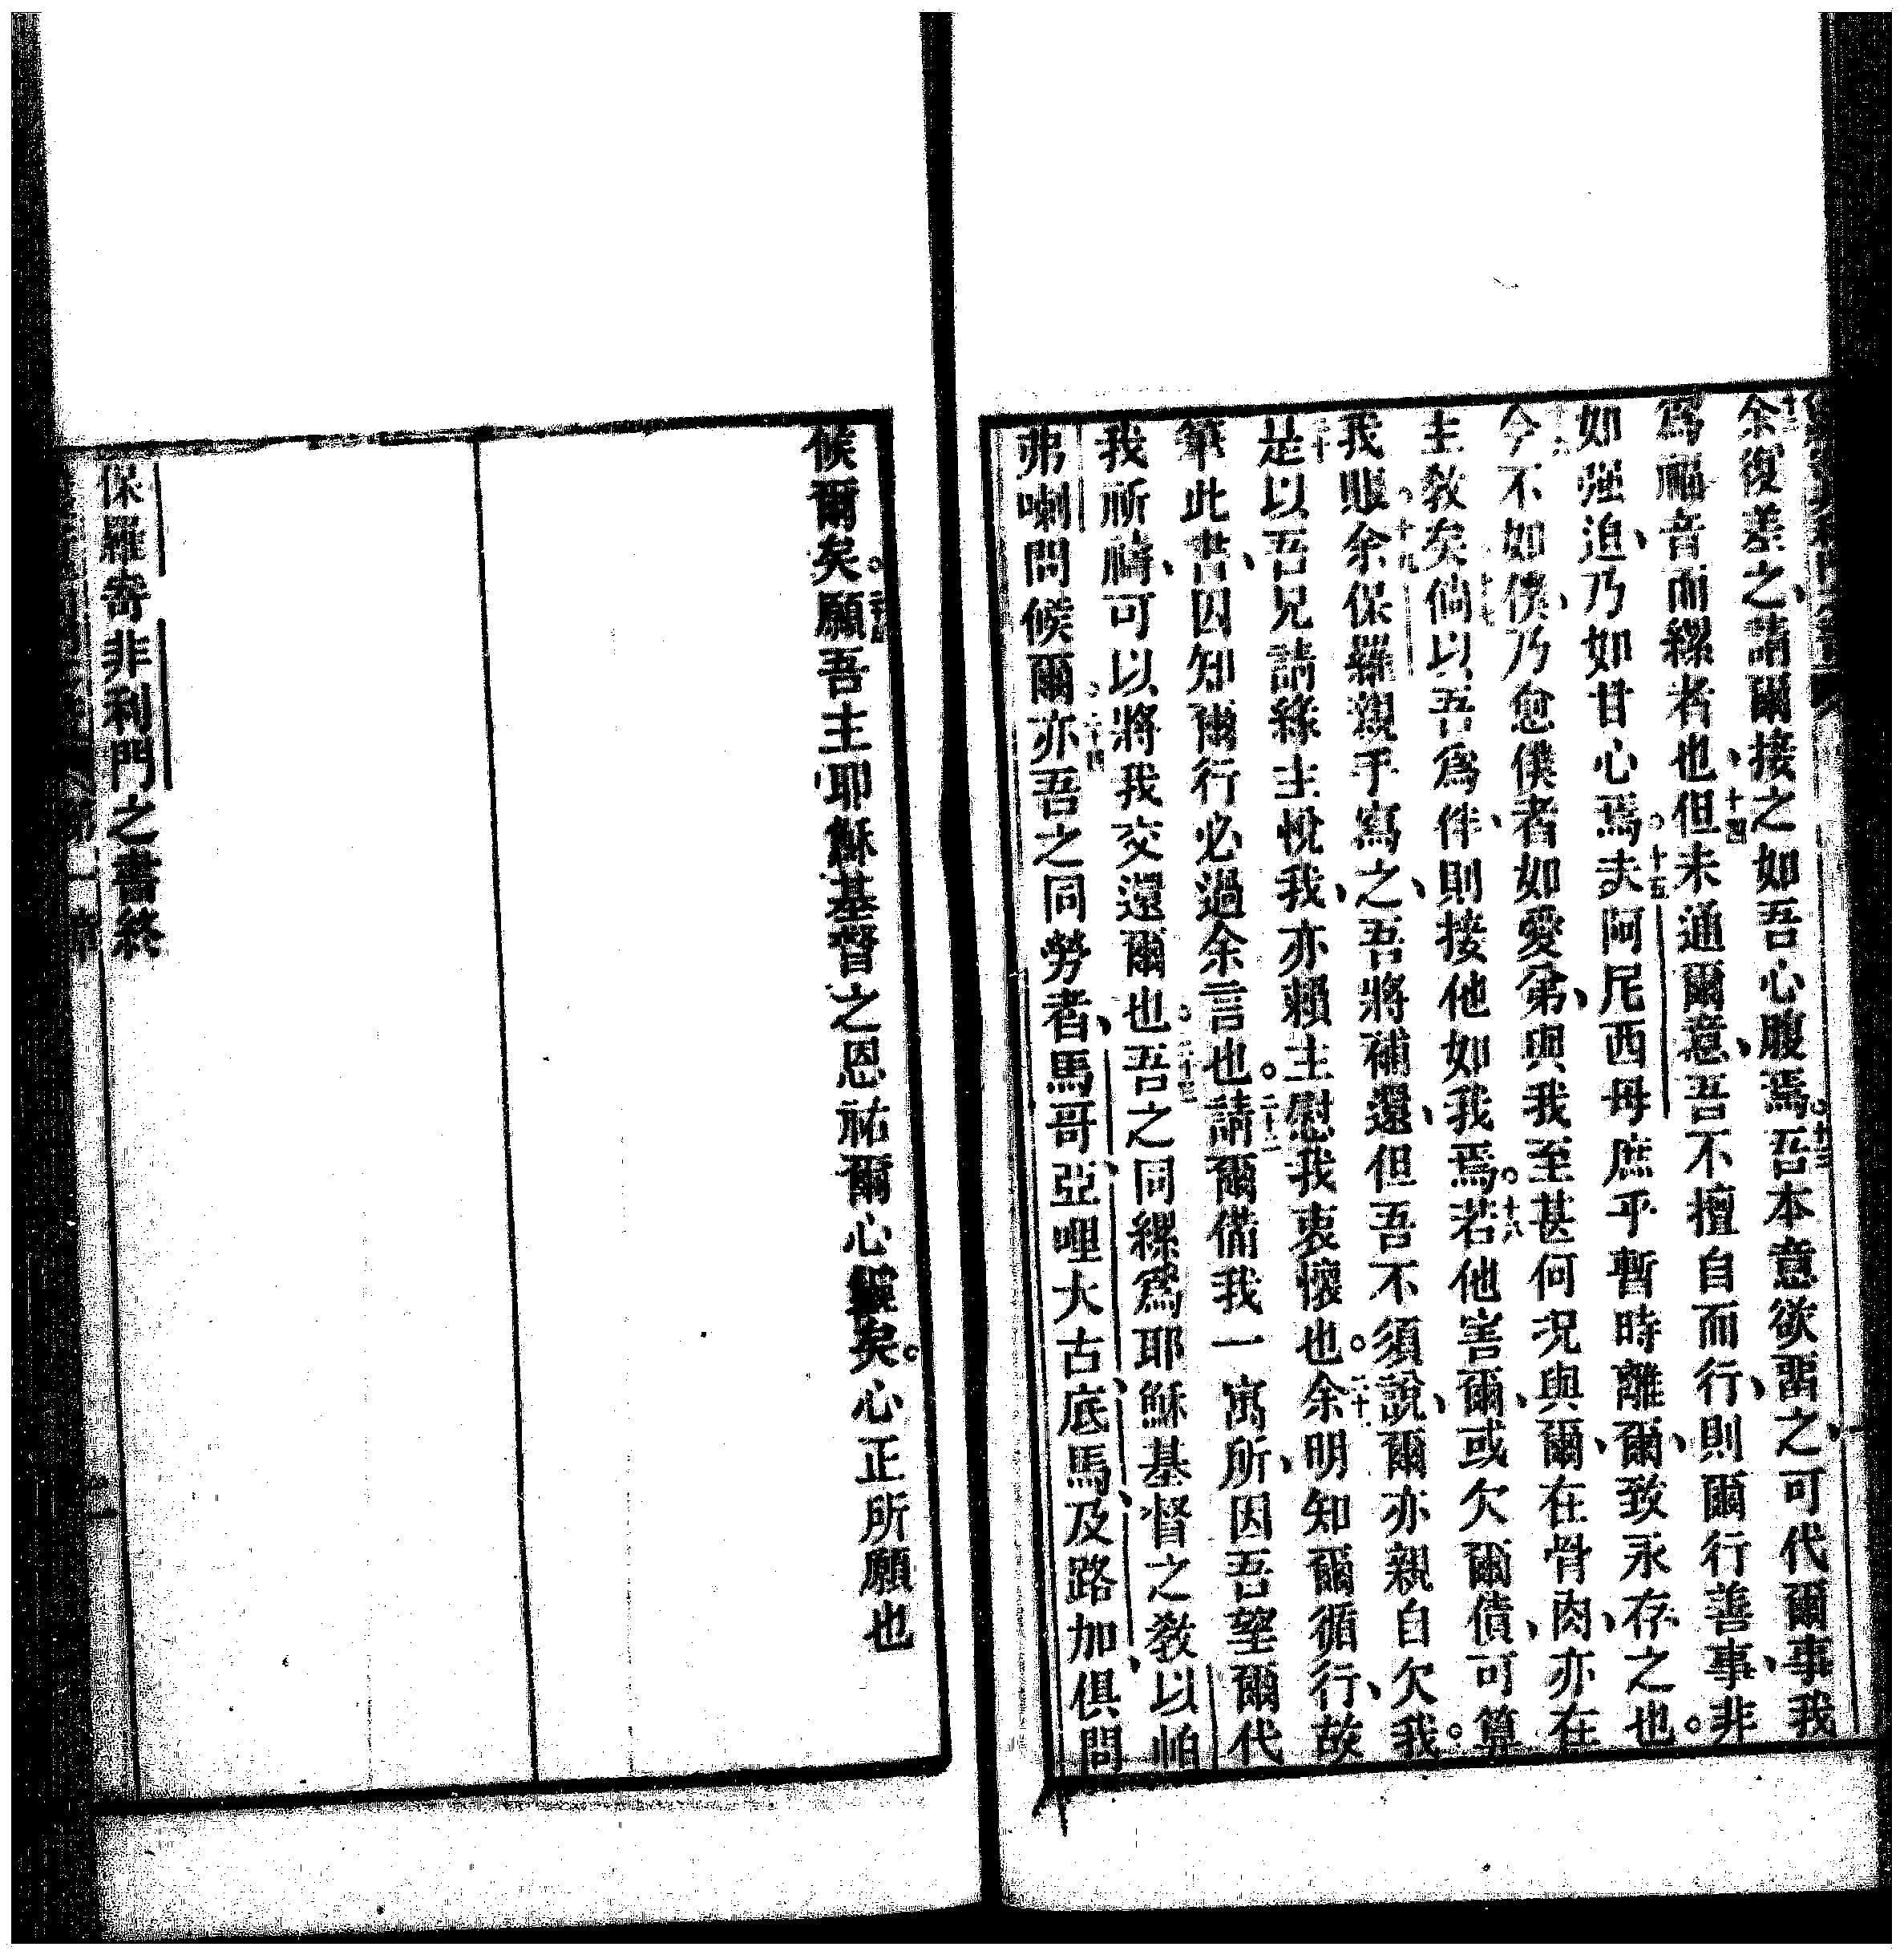 十二余復差之、請爾接之如吾心腹焉。十三吾本意欲畱之、可代爾事我
爲福音而縲者也、十四但未通爾意、吾不擅自而行、則爾行善事、非
如强迫、乃如甘心焉。十五夫阿尼西母庶乎暫時離爾、致永存之也。
今不如僕、乃愈僕者如愛弟、與我至甚何況與爾、在骨肉、亦在
主敎矣倘以吾爲伴、則接他如我焉。十八若他害爾、或欠爾債、可算
我賬。十九余保羅親手寫之、吾將補還、但吾不須說、爾亦親自欠我。
二十是以吾兄請緣主悅我、亦賴主慰我衷懷也。二十一余明知爾循行、故
筆此書、因知爾行必過余言也。二十二請爾備我一寓所、因吾望爾代
我祈禱、可以將我交還爾也。二十三吾之同縲爲耶穌基督之敎以帕
弗喇問候爾。二十四亦吾之同勞者、馬哥、亞哩大古、底馬、及路加、俱問
候爾矣。二十五願吾主耶穌基督之恩祐爾心靈矣。心正所願也
保羅寄非利門之書終